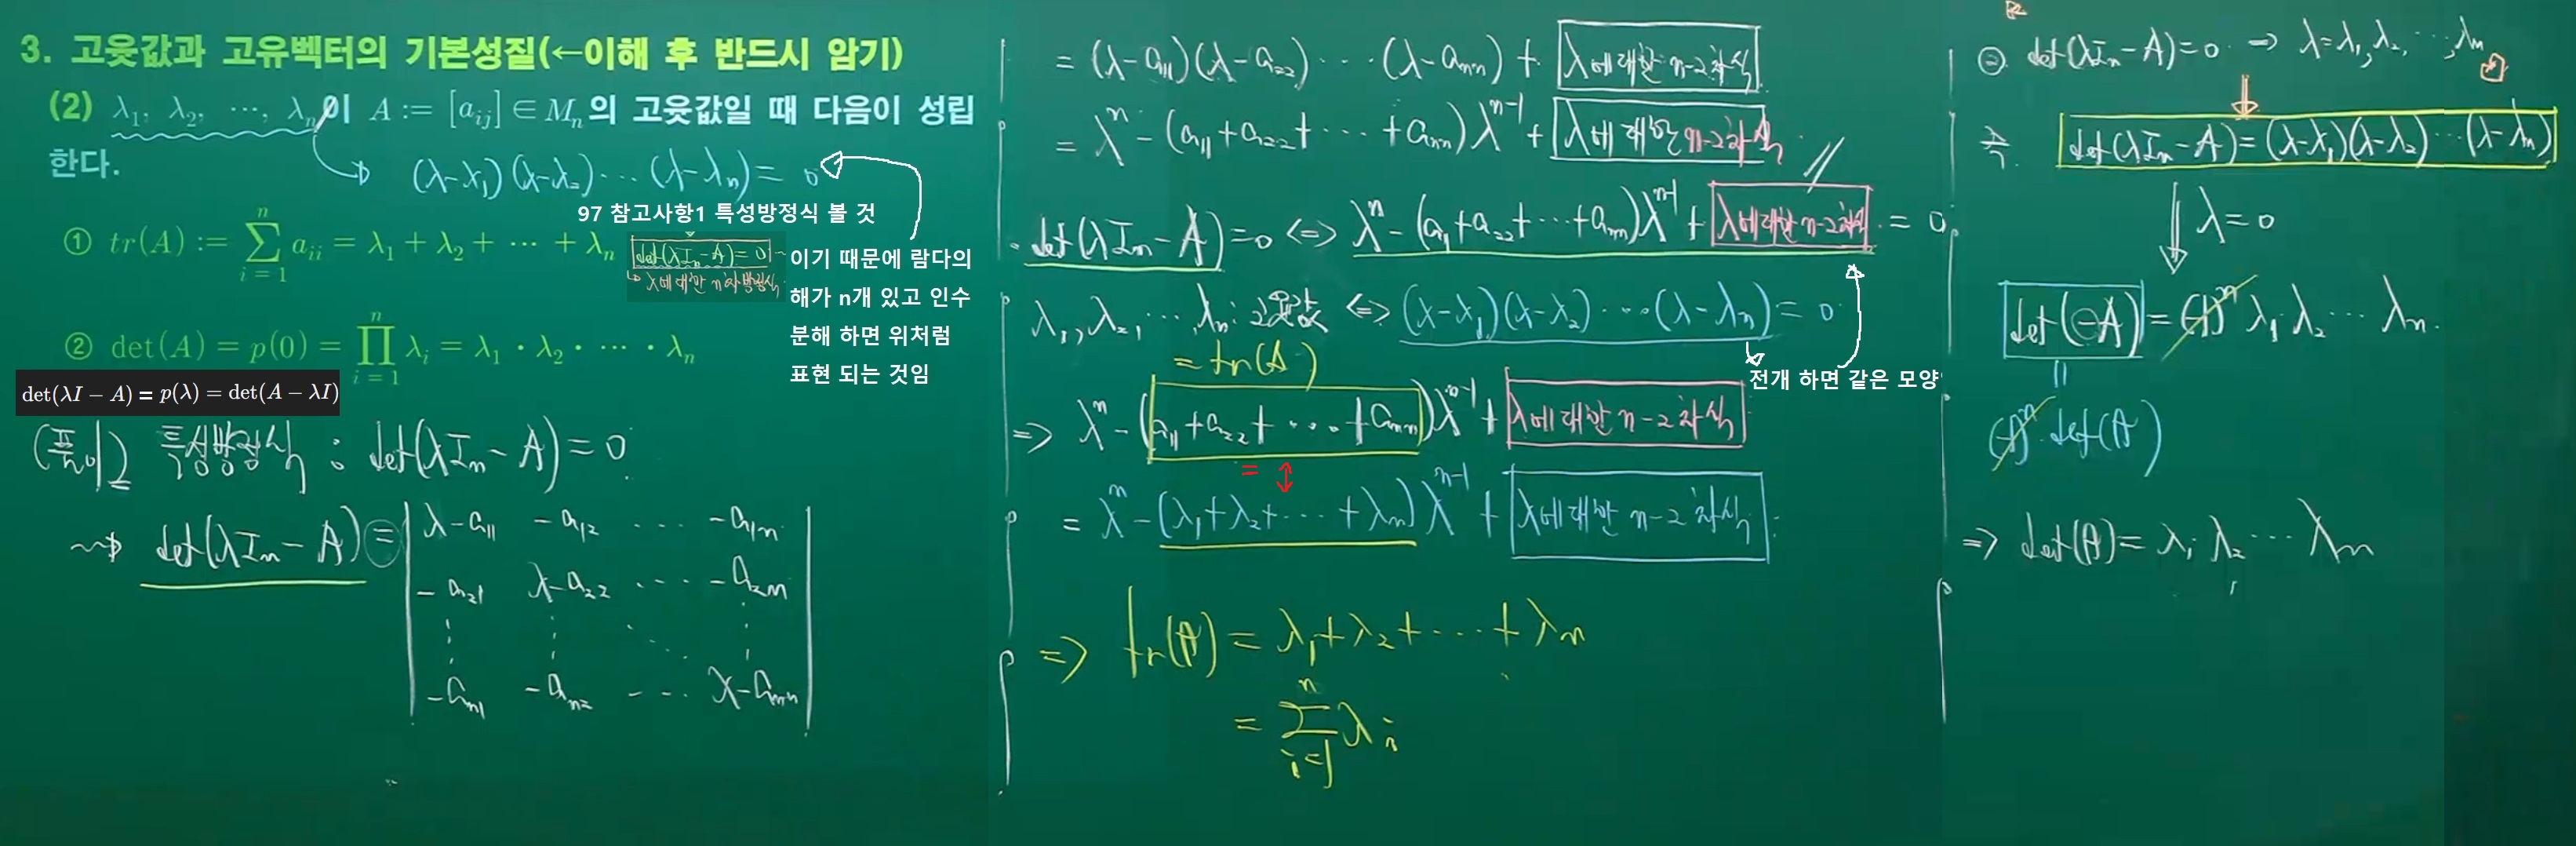 3. 고윳값과 고유벡터의 기본성질(←이해 후 반드시 암기)
(2) λ₁, λ₂, ⋯, λₙ이 A := [aᵢⱼ] ∈ Mₙ의 고윳값일 때 다음이 성립
한다.
(λ-λ₁)(λ-λ₂)⋯(λ-λₙ)= 0
97 참고사항1 특성방정식 볼 것
① tr(A) := ∑ᵢ₌₁ⁿ aᵢᵢ = λ₁ + λ₂ + ⋯ + λₙ
det(λIₙ-A)= 0
↳ λ에 대한 n차방정식
이기 때문에 람다의
해가 n개 있고 인수
분해 하면 위처럼
표현 되는 것임
② det(A) = p(0) = ∏ᵢ₌₁ⁿ λᵢ = λ₁ · λ₂ · ⋯ · λₙ
det(λI − A) = p(λ) = det(A − λI)
(풀이) 특성방정식 : det(λIₙ-A)=0
⇝ det(λIₙ-A)=
λ-a₁₁ -a₁₂ ⋯ -a₁ₙ
-a₂₁ λ-a₂₂ ⋯ -a₂ₙ
⋮ ⋮ ⋱ ⋮
-aₙ₁ -aₙ₂ ⋯ λ-aₙₙ
= (λ-a₁₁)(λ-a₂₂)⋯(λ-aₙₙ)+ λ에 대한 n-2차식
= λⁿ-(a₁₁+a₂₂+⋯+aₙₙ)λⁿ⁻¹+ λ에 대한 n-2차식
det(λIₙ-A)=0 ⇔ λⁿ-(a₁₁+a₂₂+⋯+aₙₙ)λⁿ⁻¹+ λ에 대한 n-2차식 = 0
λ₁, λ₂, ⋯, λₙ: 고윳값 ⇔ (λ-λ₁)(λ-λ₂)⋯(λ-λₙ)= 0
전개 하면 같은 모양
= tr(A)
⇒ λⁿ-(a₁₁+a₂₂+⋯+aₙₙ)λⁿ⁻¹+ λ에 대한 n-2차식
= ↕
= λⁿ-(λ₁+λ₂+⋯+λₙ)λⁿ⁻¹+ λ에 대한 n-2차식
⇒ tr(A)= λ₁+λ₂+⋯+λₙ
= ∑ᵢ₌₁ⁿ λᵢ
② det(λIₙ-A)=0 ⇒ λ=λ₁, λ₂, ⋯, λₙ
즉. det(λIₙ-A)=(λ-λ₁)(λ-λ₂)⋯(λ-λₙ)
⇓ λ=0
det(-A)=(-1)ⁿ λ₁·λ₂⋯λₙ.
||
(-1)ⁿ·det(A)
⇒ det(A)= λ₁·λ₂⋯λₙ